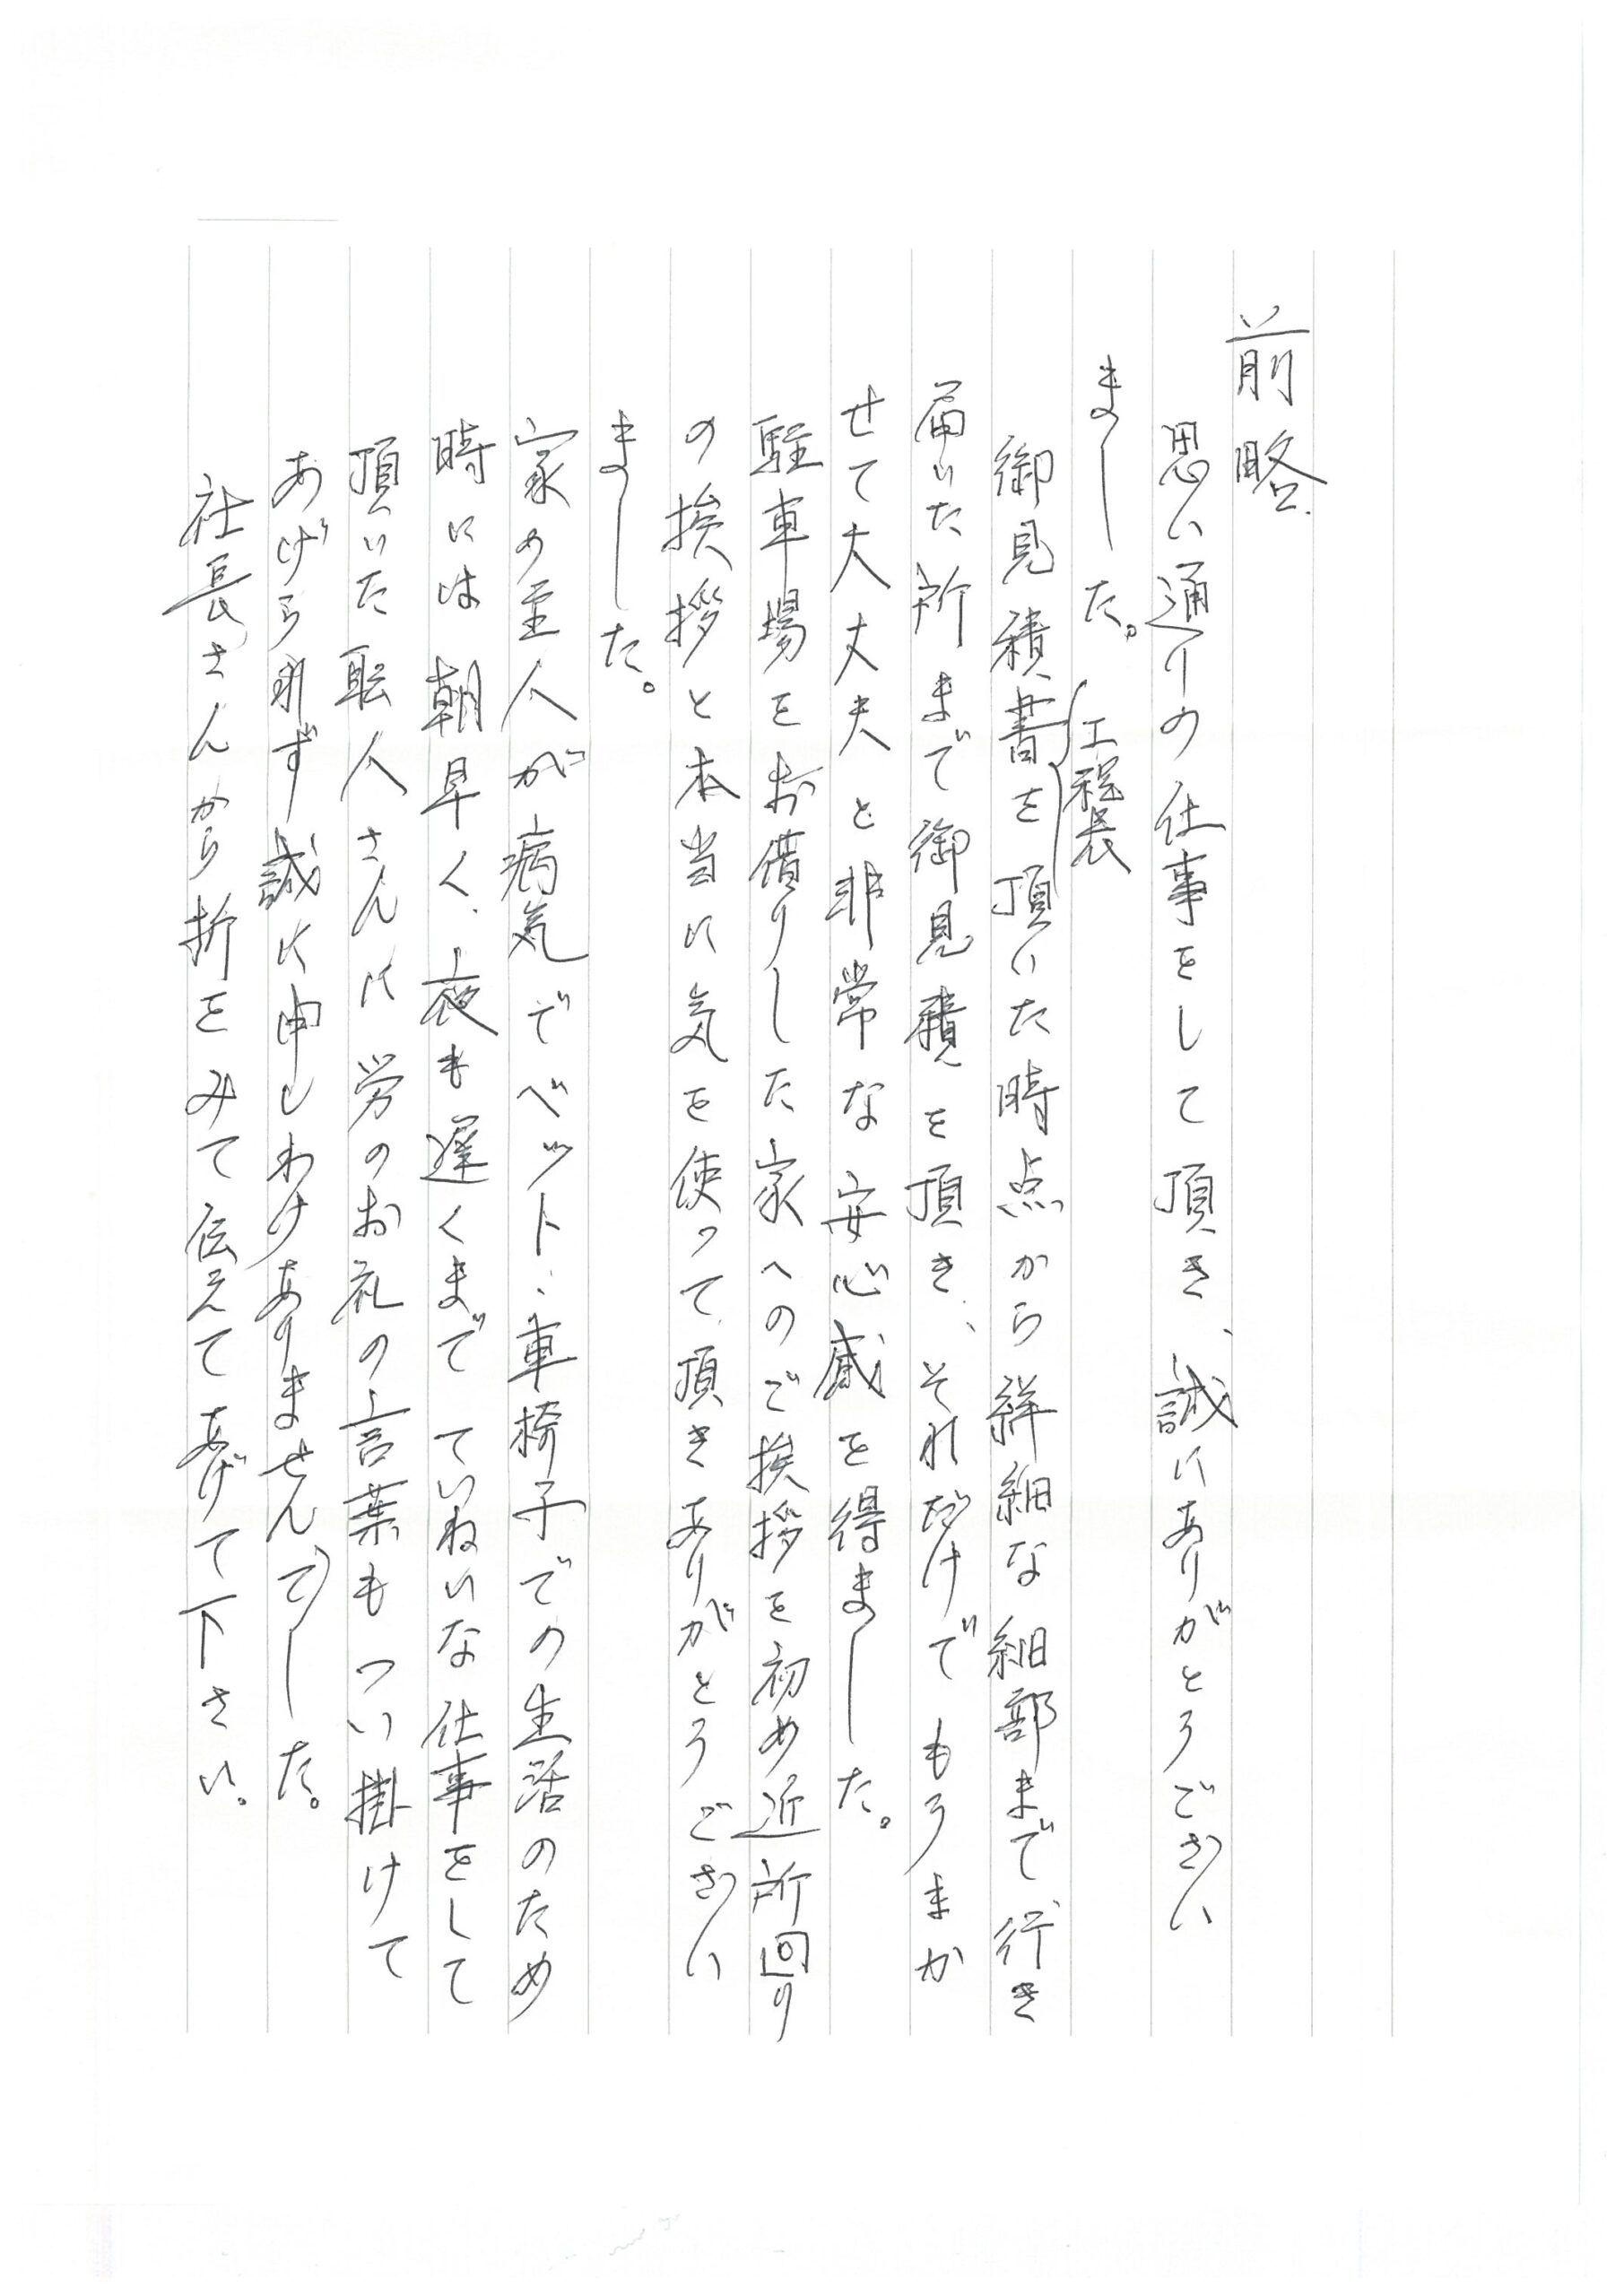 前略
思い通りの仕事をして頂き、誠にありがとうござい
ました。
工程表
御見積書を頂いた時点から詳細な細部まで行き
届いた所まで御見積を頂き、それだけでもうまか
せて大丈夫と非常な安心感を得ました。
駐車場をお借りした家へのご挨拶を初め近所回り
の挨拶と本当に気を使って頂きありがとうござい
ました。
家の主人が病気でベット、車椅子での生活のため
時には朝早く、夜も遅くまでていねいな仕事をして
頂いた職人さんに労のお礼の言葉もつい掛けて
あげられず誠に申しわけありませんでした。
社長さんから折をみて伝えてあげて下さい。